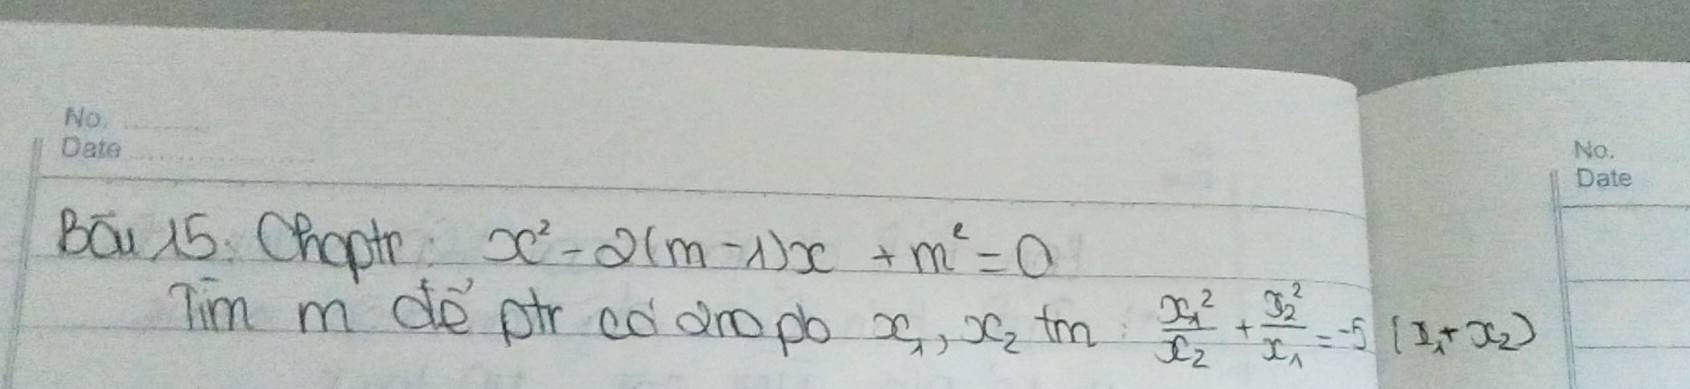 No.
Date
Bài 15: Cho ptr: x² - 2(m - 1)x + m² = 0
Tìm m để ptr có 2 no pb x₁, x₂ tm: x₁²/x₂ + x₂²/x₁ = -5 (x₁ + x₂)
No.
Date